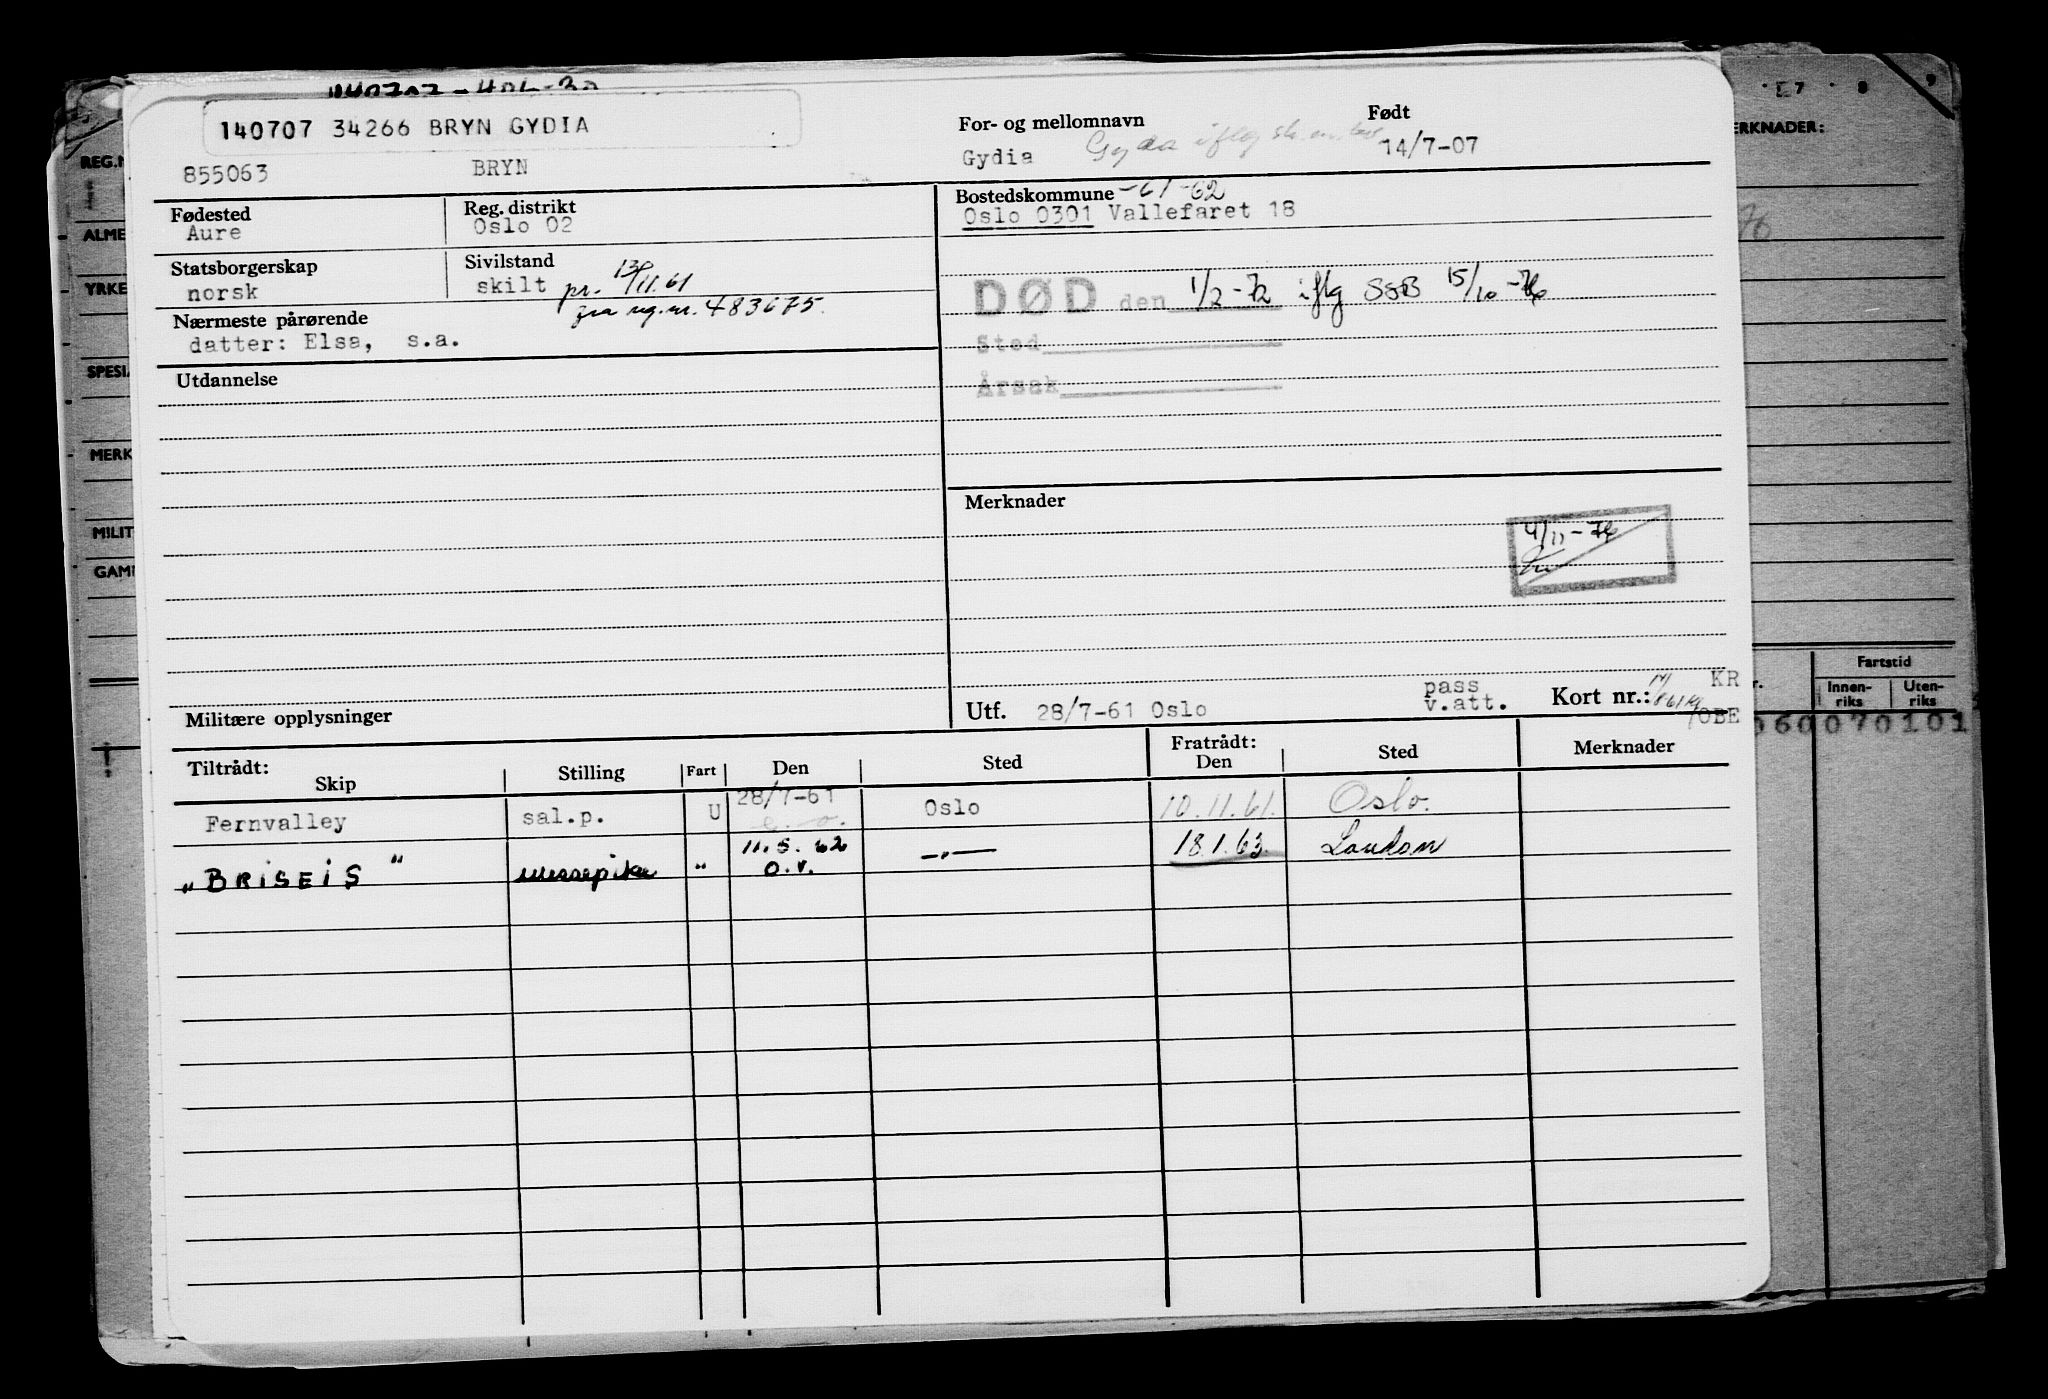 140707 34266 BRYN GYDIA
855063 BRYN
For- og mellomnavn
Gydia Gyda iflg
Født
14/7-07
Fødested
Aure
Reg. distrikt
Oslo 02
Bostedskommune -61-62
Oslo 0301 Vallefaret 18
Statsborgerskap
norsk
Sivilstand
skilt pr. 13/11.61
fra reg.nr. 483675.
DØD den 1/2-72 iflg SSB 15/10-76
Sted
Årsak
Nærmeste pårørende
datter: Elsa, s.a.
Utdannelse
Merknader
4/11-76
Militære opplysninger
Utf. 28/7-61 Oslo
pass
v.att.
Kort nr.:
KR
OBE
Tiltrådt:
Skip Stilling Fart Den Sted
Fratrådt:
Den Sted Merknader
Fernvalley sal.p. U 28/7-61 Oslo 10.11.61. Oslo.
"BRISEIS" messepike " 11.5.62 —"— 18.1.63. London
o.v.
REG.N
ALME
YRKE
SPESI
MERK
MILIT
GAM
7 8 9
ERKNADER:
76
Fartstid
Innen-
riks
Uten-
riks
060070101